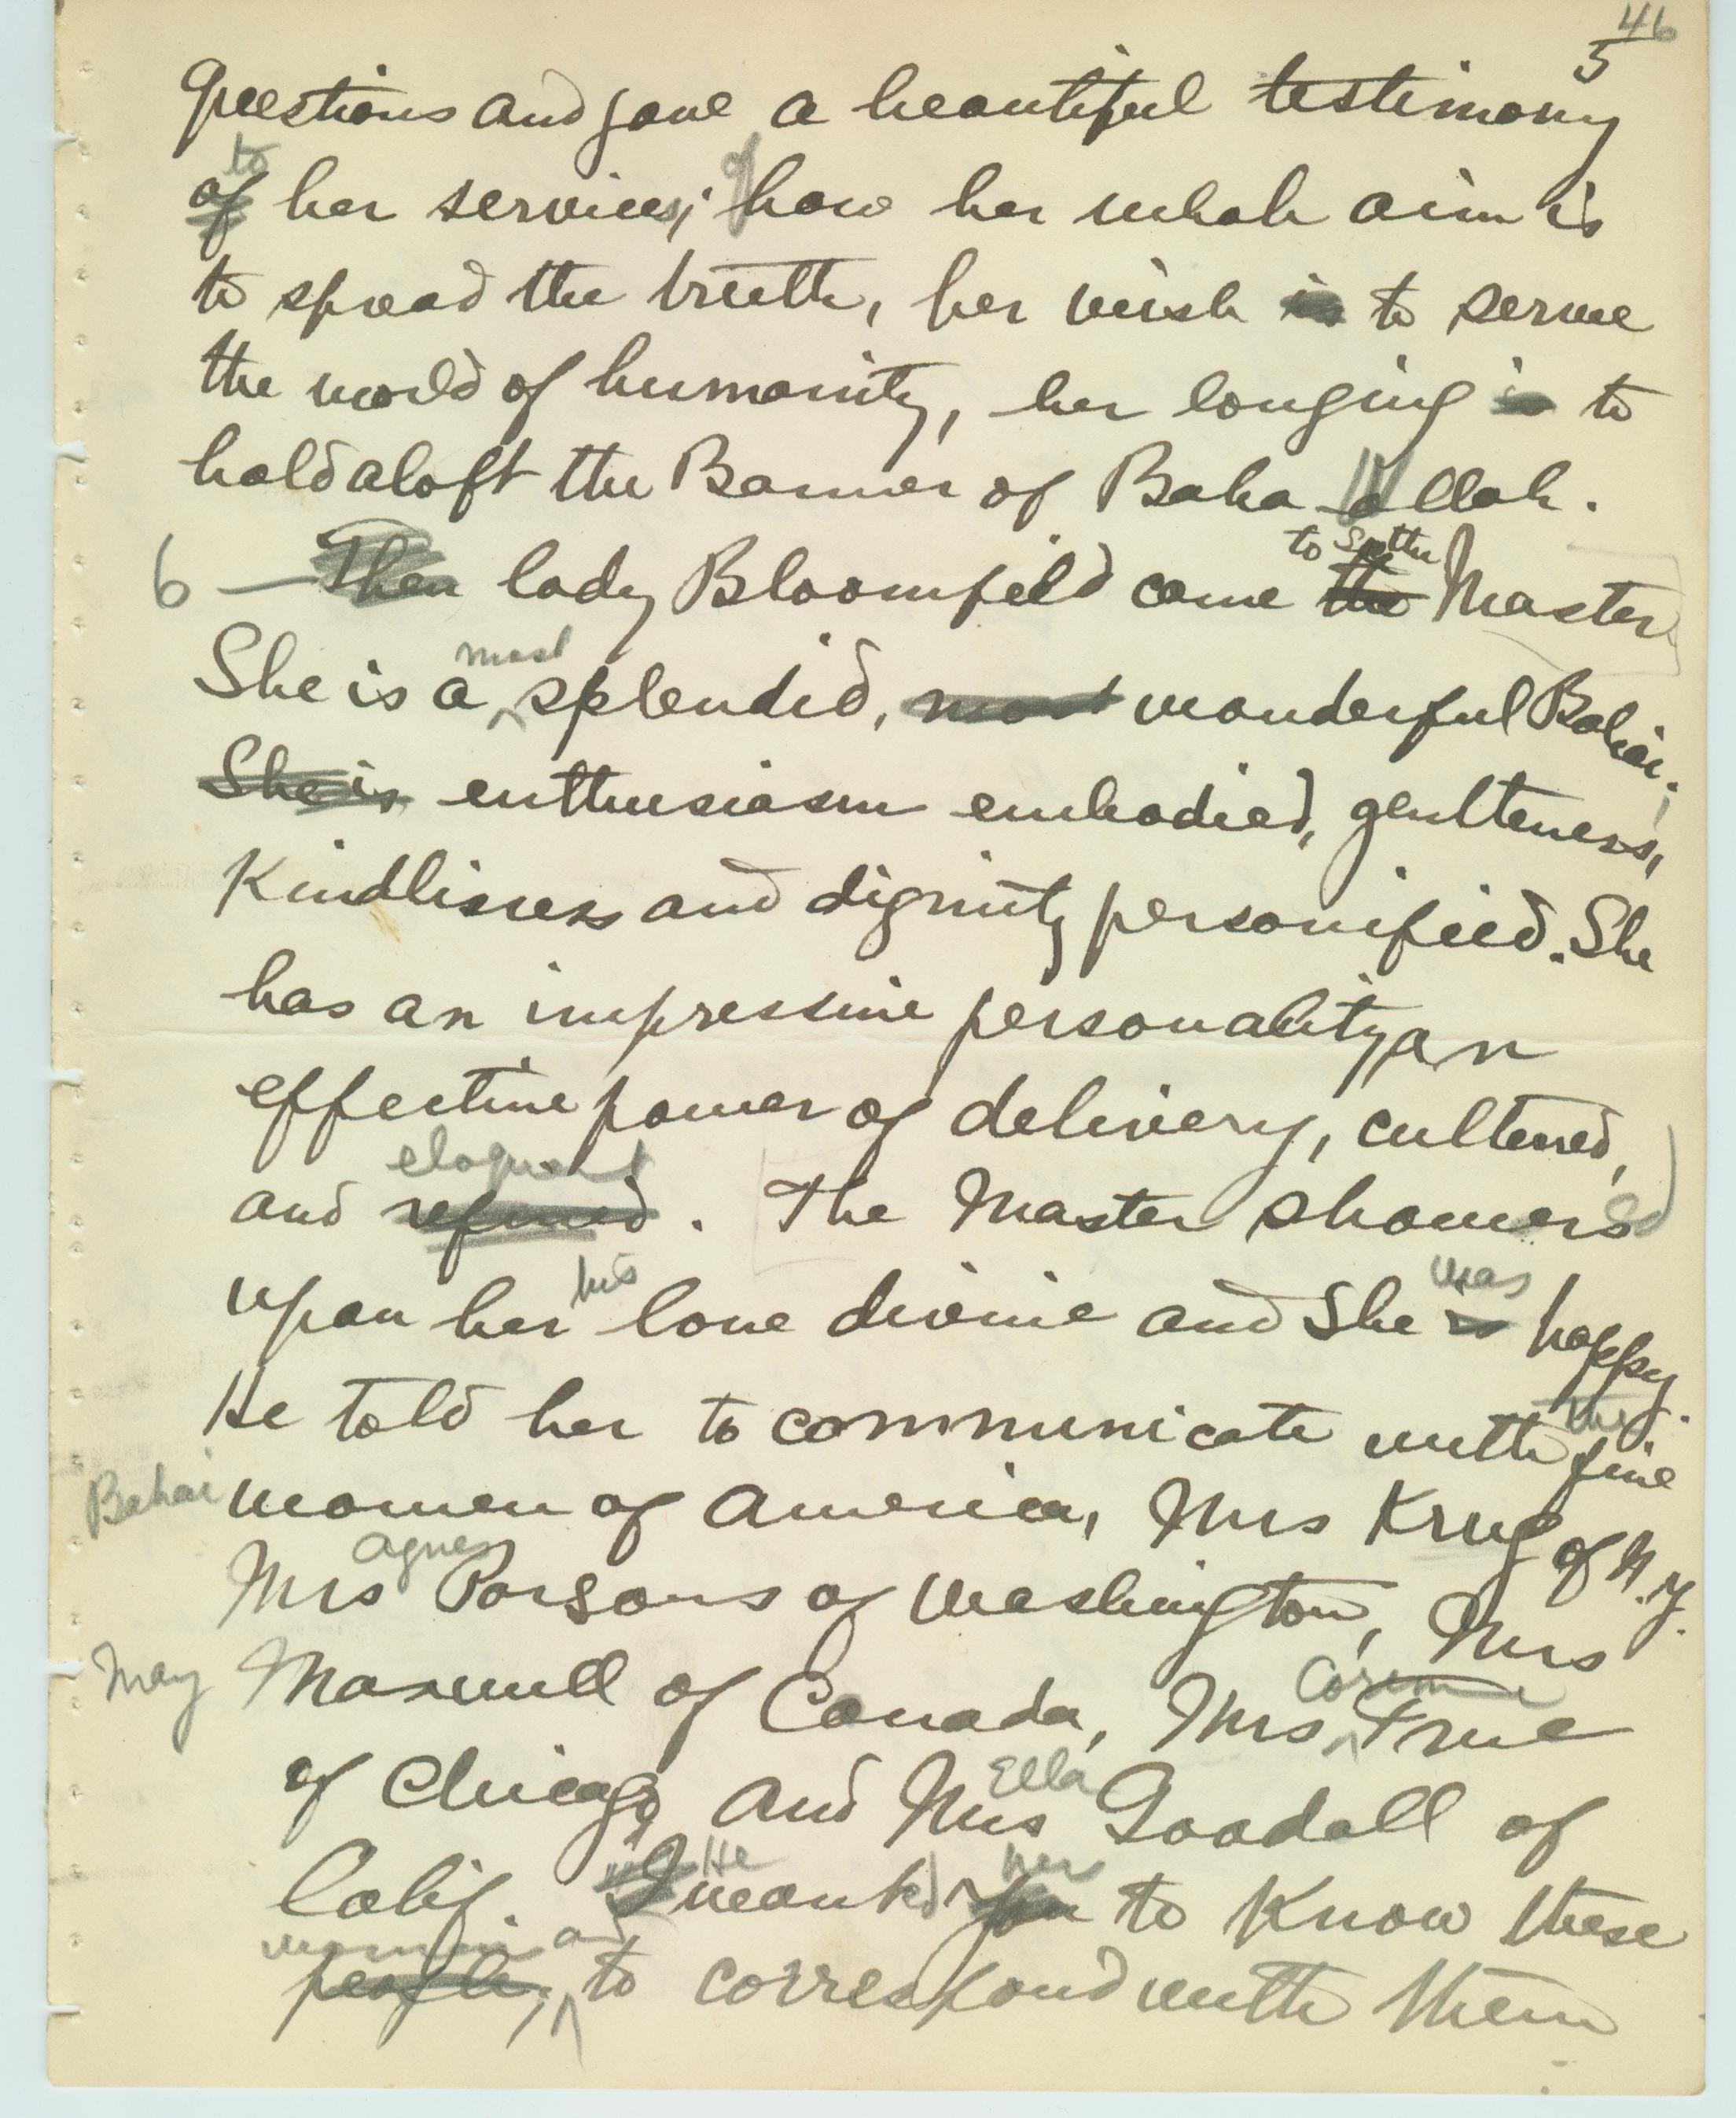 46
5
questions and gave a beautiful testimony
to of
of her services; how her whole aim is
to spread the truth, her wish is to serve
the world of humanity, her longing is to
hold aloft the Banner of Baha ollah.
to see the
6 — Then lady Bloomfield came the Master
most
She is a ^ splendid, most wonderful Bahai.
She is enthusiasm embodied, gentleness,
Kindliness and dignity personified. She
has an impressive personality, an
effective power of delivery, cultured,
eloquent
and refined. The Master showers ed
his was
upon her love divine and She is happy.
He told her to communicate with the fine
Bahai women of America, Mrs Krug of N.Y.
Agnes
Mrs Parsons of Washington, Mrs
May Maxwell of Canada, Mrs ^ True
Corinne
of Chicago, and Mrs Goodall of
Ella
He her
Calif. I wanted you to Know these
women and
people, ^ to correspond with them